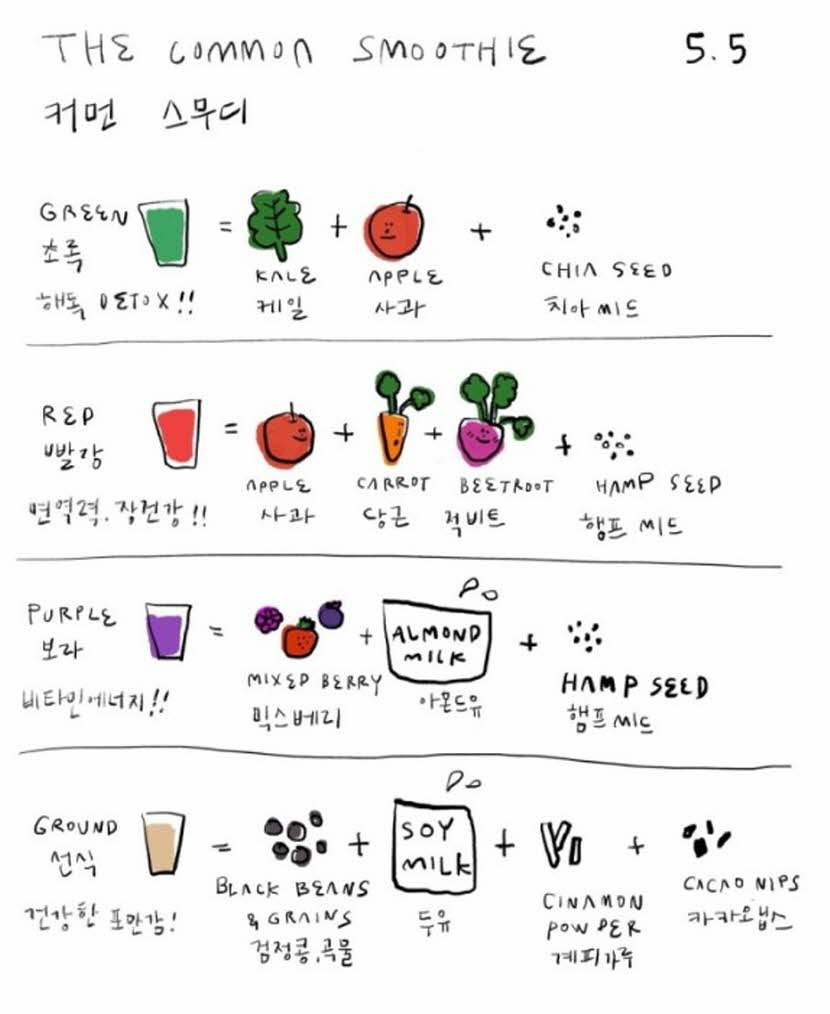 THE COMMON SMOOTHIE 5.5
커먼 스무디
GREEN = + +
초록
해독 DETOX!!
KALE APPLE CHIA SEED
케일 사과 치아씨드
RED = + + +
빨강
면역력. 장건강!!
APPLE CARROT BEETROOT HAMP SEED
사과 당근 적비트 햄프씨드
PURPLE = + ALMOND MILK +
보라
비타민에너지!!
MIXED BERRY 아몬드유 HAMP SEED
믹스베리 햄프씨드
GROUND = + SOY MILK + +
선식
건강한 포만감!
BLACK BEANS
& GRAINS
검정콩,곡물
두유
CINAMON
POWDER
계피가루
CACAO NIPS
카카오닙스